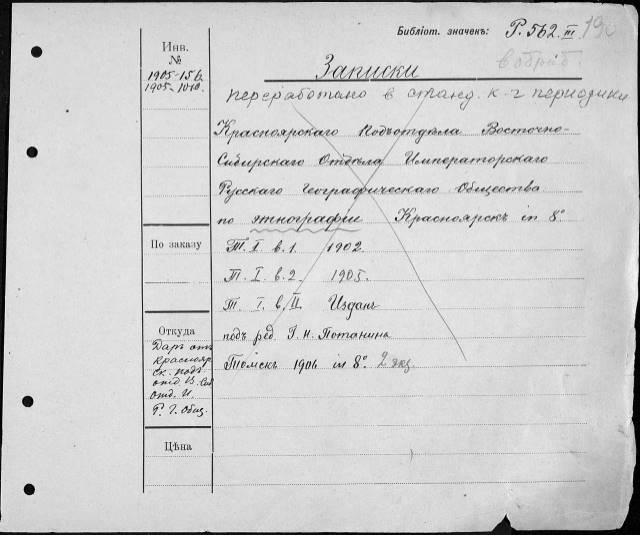 Библіот. значекъ: Р. 562 III
Инв.
№
1905-156
Записки
переработано в станд. к-г периодики
Красноярскаго Подъотдѣла Восточно-
Сибирскаго Отдѣла Императорскаго
Русскаго Географическаго Общества
по этнографіи Красноярскъ in 8º
По заказу
Т. I. в. 1. 1902.
Т. I. в. 2. 1905.
Т. I. в. II. Изданъ
Откуда
подъ ред. Г. Н. Потанина
Томскъ 1906 in 8º. 2 экз.
Даръ отъ
Краснояр
ск. подъ
отд. В. Сиб
отд. И.
Р. Г. Общ.
Цѣна